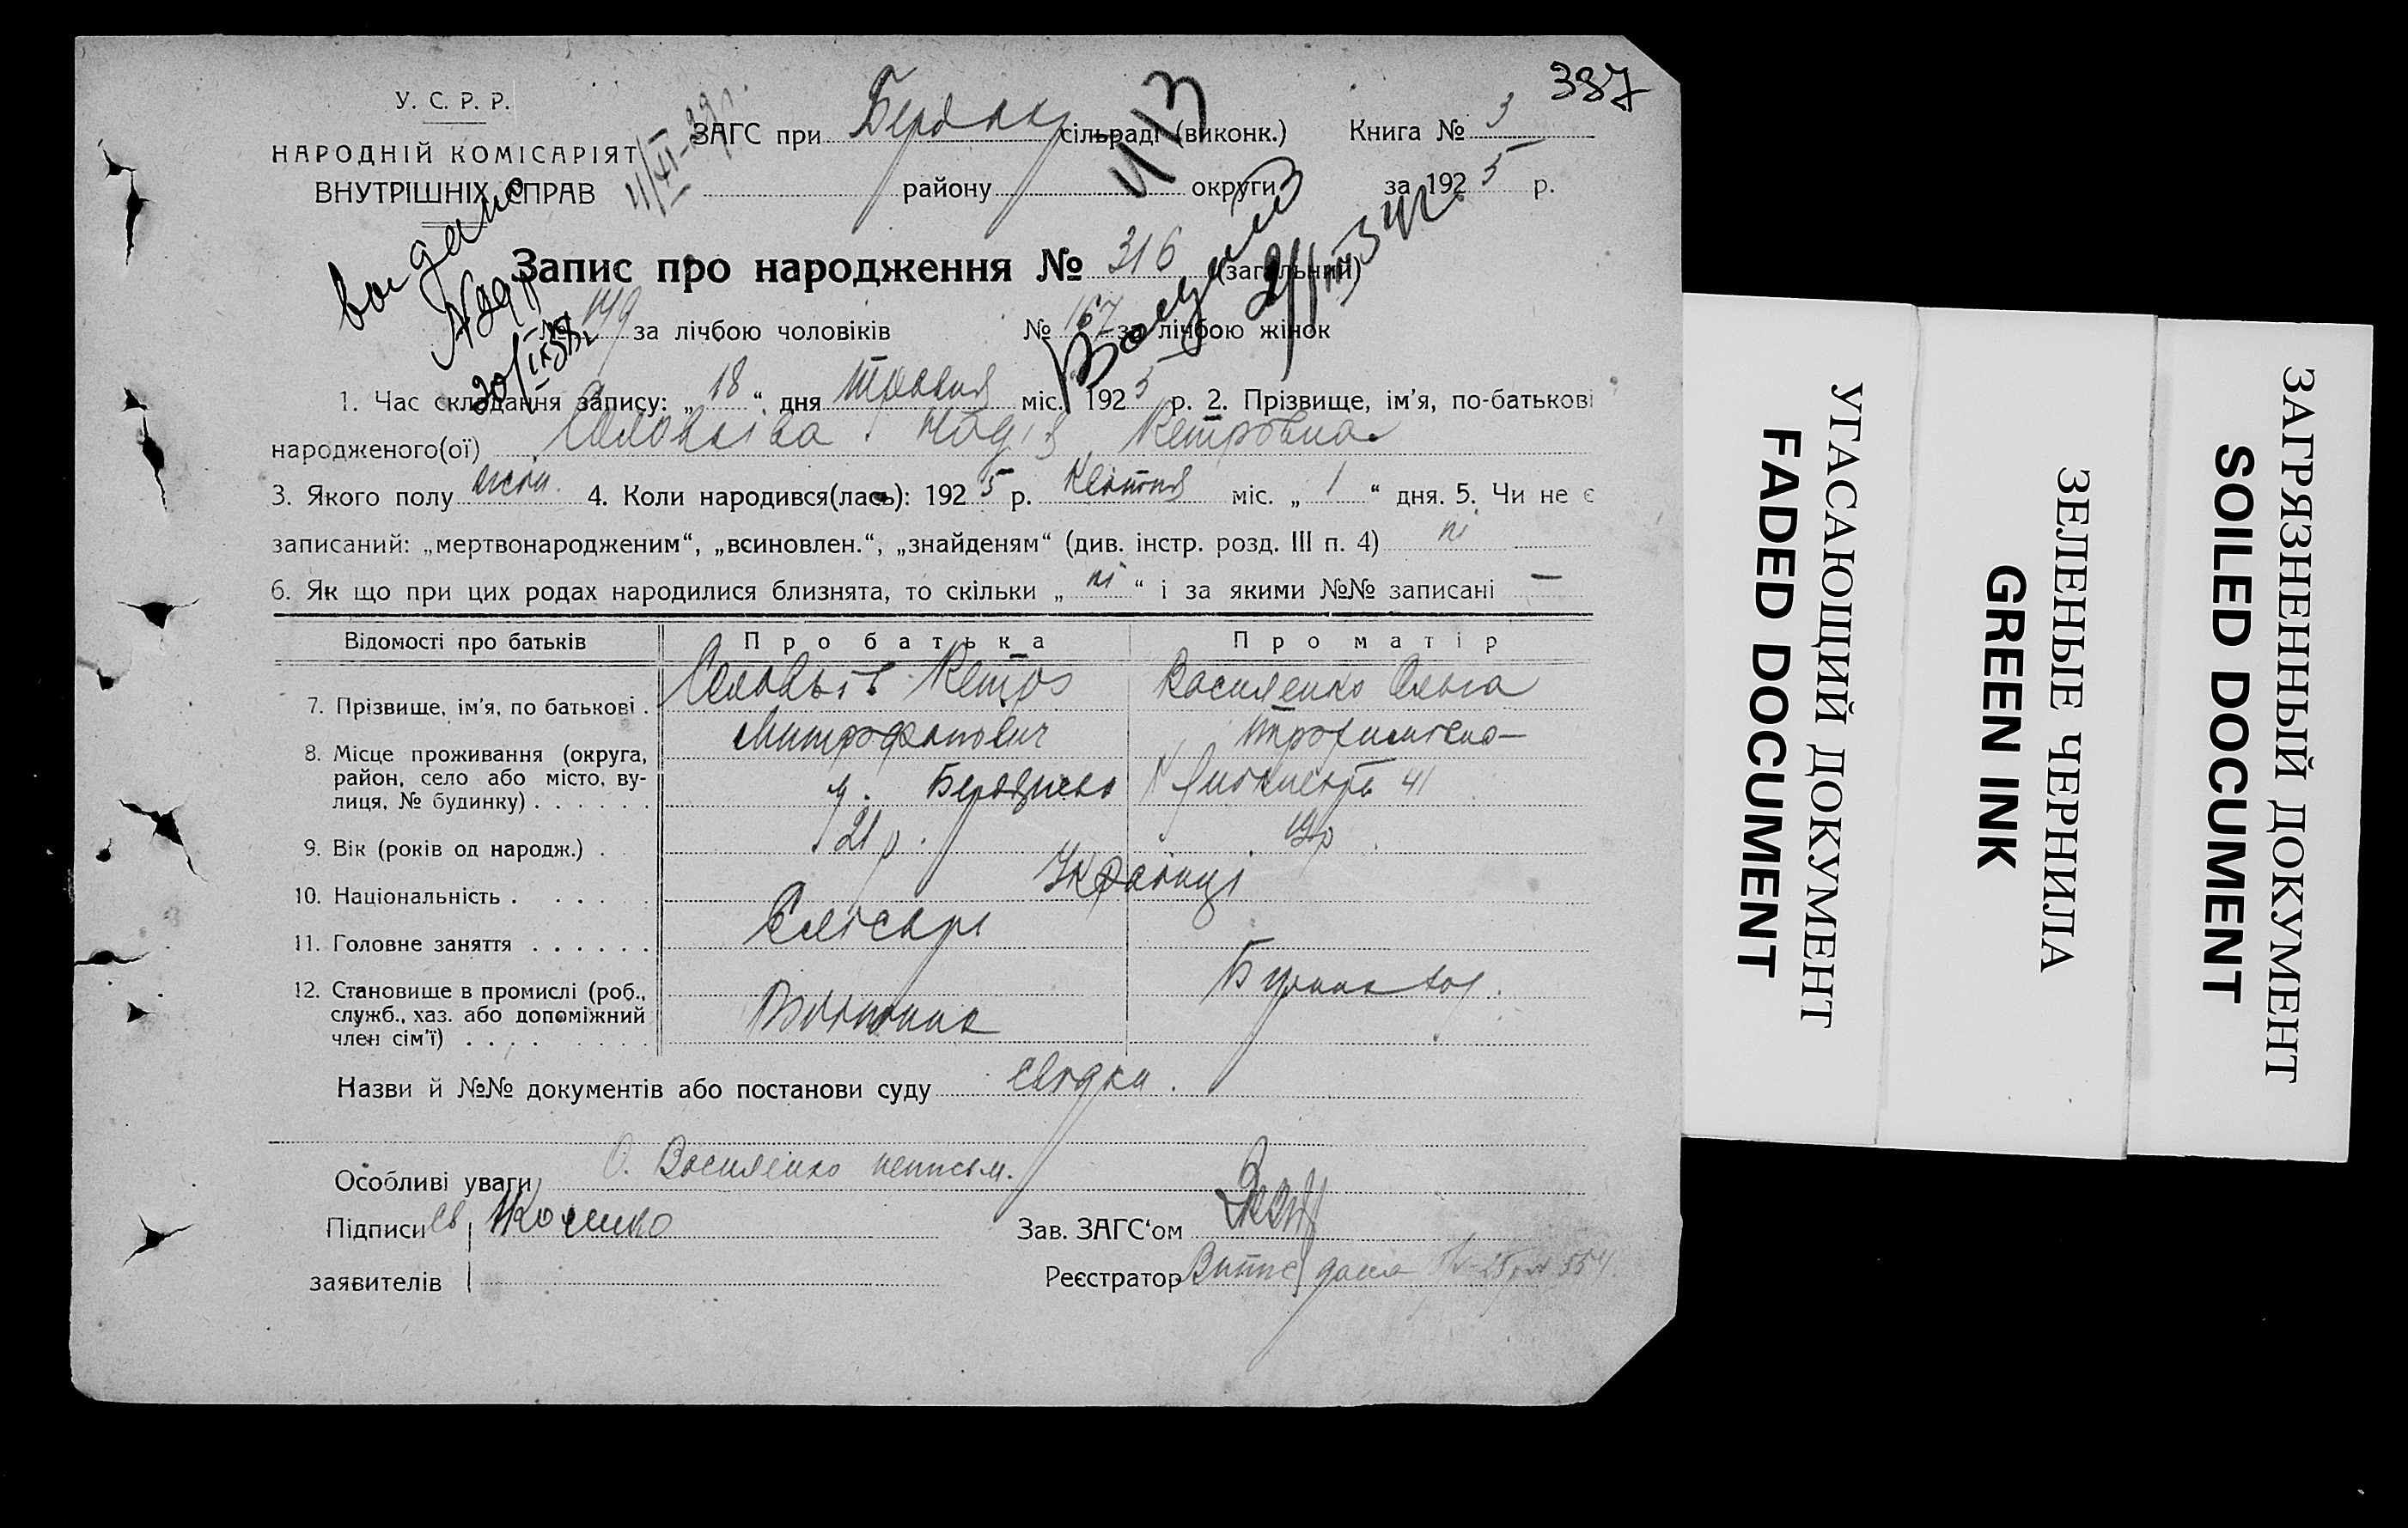 387
У. С. Р. Р.
НАРОДНІЙ КОМІСАРІЯТ
ВНУТРІШНІХ СПРАВ
11/XI-39р.
ЗАГС при сільраді (виконк.) Книга № 3
району округи за 1925 р.
Запис про народження № 316 (загальний)
№ 149 за лічбою чоловіків № 167 за лічбою жінок
20/IX 38
1. Час складання запису: „18“ дня травня міс. 1925 р. 2. Прізвище, ім'я, по-батькові
народженого(ої) Соловьіва Надія Петровна
3. Якого полу жін. 4. Коли народився(лась): 1925 р. Квітня міс. „1“ дня. 5. Чи не є
записаний: „мертвонародженим“, „всиновлен.“, „знайденям“ (див. інстр. розд. III п. 4) ні
6. Як що при цих родах народилися близнята, то скільки „ні“ і за якими №№ записані —
Відомості про батьків Про батька Про матір
7. Прізвище, ім'я, по батькові . Соловьів Петро Василенко Ольга
Митрофанович Трохимівна
8. Місце проживання (округа,
район, село або місто, ву-
лиця, № будинку) . . . . . . 41
9. Вік (років од народж.) . 21 р. 19 р.
10. Національність . . . . . Українці
11. Головне заняття . . . . . . Слюсарь
12. Становище в промислі (роб.,
служб., хаз. або допоміжний
член сім'ї) . . . . . . . .
Назви й №№ документів або постанови суду свідки.
Особливі уваги О. Василенко неписьм.
Підписи Зав. ЗАГС'ом
заявителів Реєстратор
УГАСАЮЩИЙ ДОКУМЕНТ
FADED DOCUMENT
ЗЕЛЕНЫЕ ЧЕРНИЛА
GREEN INK
ЗАГРЯЗНЕННЫЙ ДОКУМЕНТ
SOILED DOCUMENT